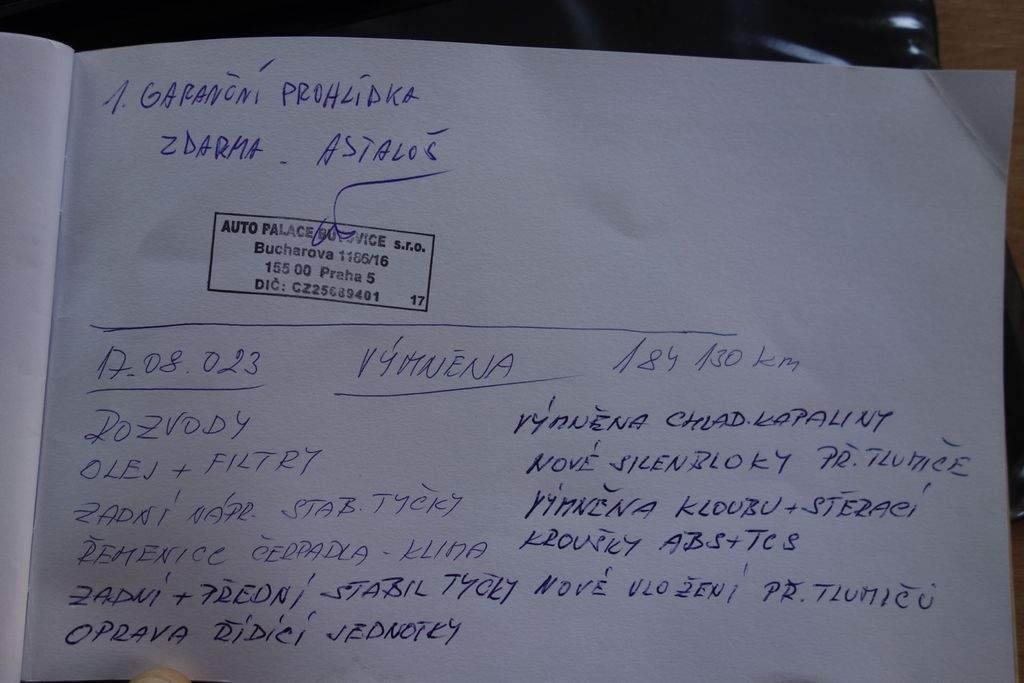 1. GARANČNÍ PROHLÍDKA
ZDARMA. ASTALOŠ
AUTO PALACE BUTOVICE s.r.o.
Bucharova 1186/16
155 00 Praha 5
DIČ: CZ25689401 17
17.08.023 VÝMNĚNA 184 130 km
ROZVODY
OLEJ + FILTRY
ZADNÍ NÁPR. STAB. TYČKY
ŘEMENICE ČERPADLA - KLIMA
ZADNÍ + PŘEDNÍ STABIL TYČKY
OPRAVA ŘÍDÍCÍ JEDNOTKY
VÝMNĚNA CHLAD. KAPALINY
NOVÉ SILENBLOKY PŘ. TLUMIČE
VÝMNĚNA KLOUBU + STĚRACÍ
KROUŠKY ABS + TCS
NOVÉ ULOŽENÍ PŘ. TLUMIČŮ